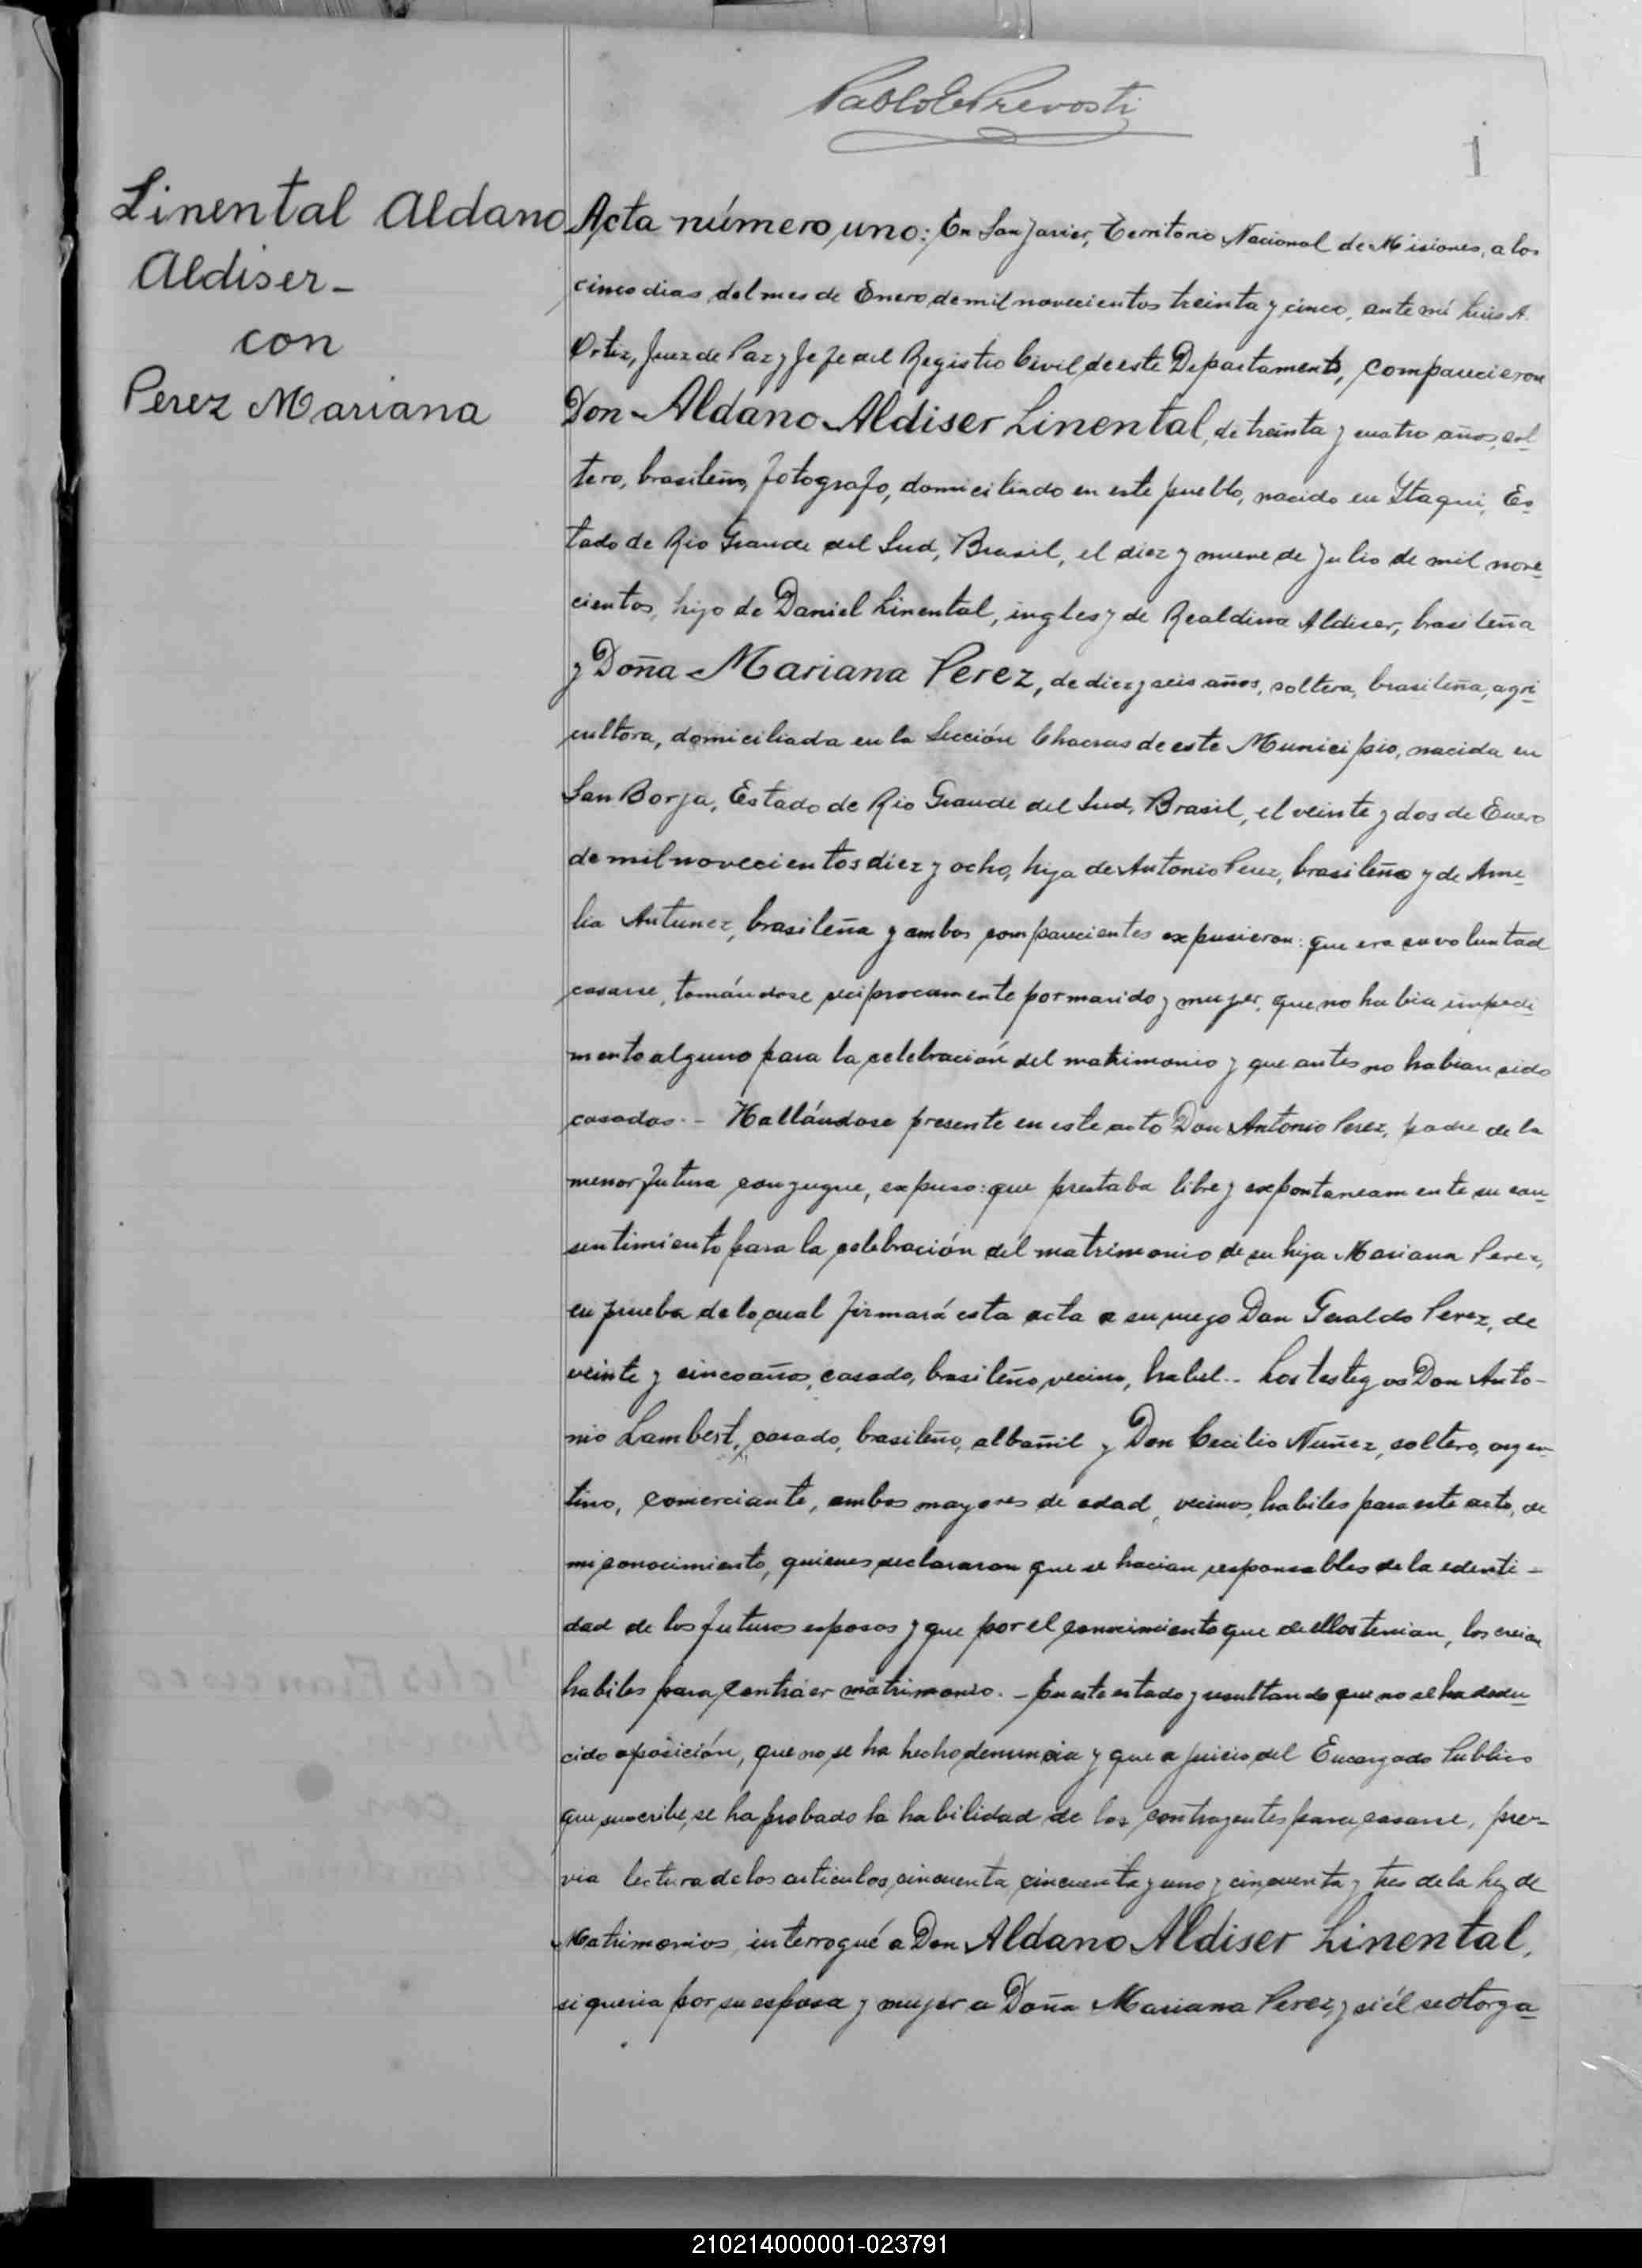 Pablo E Prevosti
1
Linental Aldano
Aldiser-
con
Perez Mariana
Acta número uno: En San Javier, Territorio Nacional de Misiones, a los
cinco dias del mes de Enero de mil novecientos treinta y cinco, ante mí Luis A.
Ortiz, Juez de Paz y Jefe del Registro Civil de este Departamento, comparecieron
Don Aldano Aldiser Linental, de treinta y cuatro años, sol-
tero, brasileño, fotografo, domiciliado en este pueblo, nacido en Itaqui, Es-
tado de Rio Grande del Sud, Brasil, el diez y nueve de Julio de mil nove-
cientos, hijo de Daniel Linental, ingles y de Realdina Aldiser, brasileña
y Doña Mariana Perez, de diez y seis años, soltera, brasileña, agri-
cultora, domiciliada en la Sección Chacras de este Municipio, nacida en
San Borja, Estado de Rio Grande del Sud, Brasil, el veinte y dos de Enero
de mil novecientos diez y ocho, hija de Antonio Perez, brasileño y de Ame-
lia Antunez, brasileña y ambos comparecientes expusieron: que era su voluntad
casarse, tomándose reciprocamente por marido y mujer, que no habia impedi-
mento alguno para la celebración del matrimonio y que antes no habian sido
casados.- Hallándose presente en este acto Don Antonio Perez, padre de la
menor futura conyugue, expuso: que prestaba libre y expontaneamente su con-
sentimiento para la celebración del matrimonio de su hija Mariana Perez,
en prueba de lo cual firmará esta acta a su ruego Don Geraldo Perez, de
veinte y cinco años, casado, brasileño, vecino, habil.- Los testigos Don Anto-
nio Lambert, casado, brasileño, albañil y Don Cecilio Nuñez, soltero, argen-
tino, comerciante, ambos mayores de edad, vecinos, habiles para este acto, de
mi conocimiento, quienes declararon que se hacian responsables de la identi-
dad de los futuros esposos y que por el conocimiento que de ellos tenian, los creian
habiles para contráer matrimonio.- En este estado y resultando que no se ha dedu-
cido oposición, que no se ha hecho denuncia y que a juicio del Encargado Publico
que suscribe, se ha probado la habilidad de los contrayentes para casarse, pre-
via lectura de los articulos cincuenta, cincuenta y uno y cincuenta y tres de la Ley de
Matrimonios, interrogué a Don Aldano Aldiser Linental,
si queria por su esposa y mujer a Doña Mariana Perez, y si él se otorga-
210214000001-023791